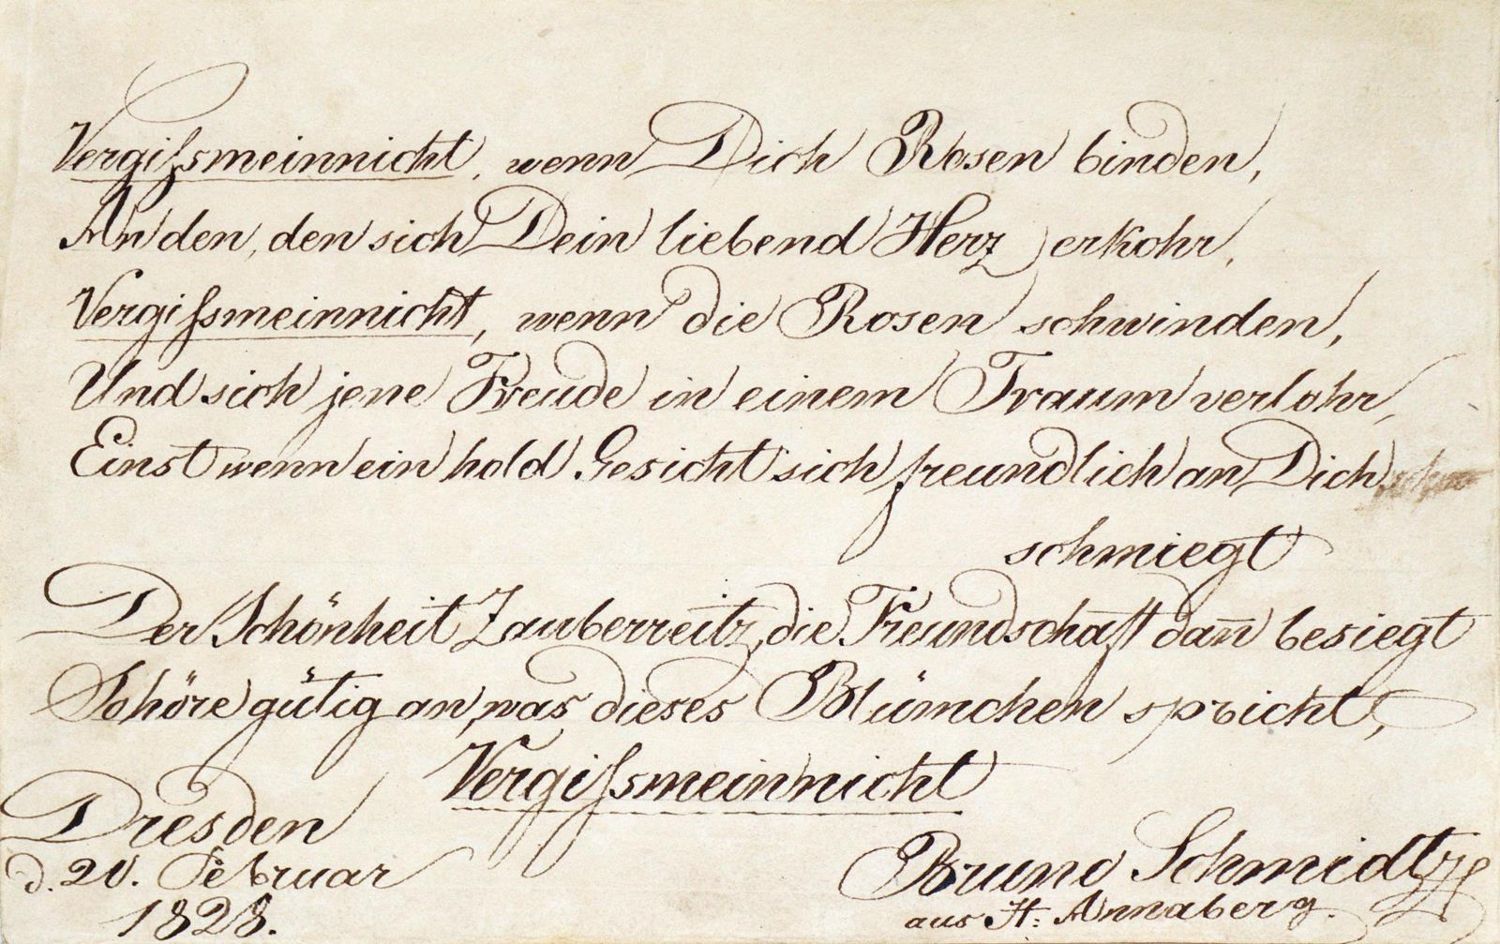 Vergiſsmeinnicht, wenn Dich Rosen binden,
An den, den sich Dein liebend Herz erkohr,
Vergiſsmeinnicht, wenn die Rosen schwinden,
Und sich jene Freude in einem Traum verlohr,
Einst wenn ein hold Gesicht sich freundlich an Dich
schmiegt
Der Schönheit Zauberreitz, die Freundschaft dan̄ besiegt
So höre gütig an, was dieses Blümchen spricht,
Vergiſsmeinnicht
Dresden
d. 20. Februar
1828.
Bruno Schmidt
aus St: Annaberg.